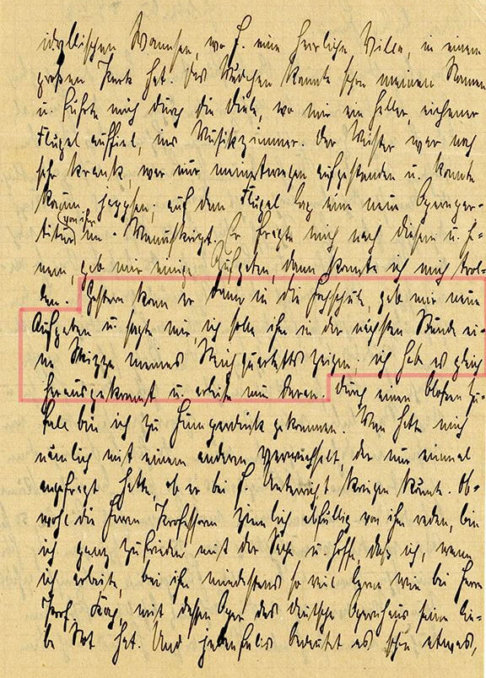 idyllischen Wannsee, wo H. eine herrliche Villa, in einem
großen Park hat. Das Mädchen kannte schon meinen Namen
u. führte mich durch die Diele, wo mir ein heller, eichener
Flügel auffiel, ins Musikzimmer. Der Meister war noch
sehr krank, war nur meinetwegen aufgestanden u. konnte
kaum japsen; auf dem Flügel lag eine neue Opernpar-
titur im Manuskript. Er fragte mich nach diesem u. je-
nem, gab mir einige Aufgaben, dann konnte ich mich trol-
len. Gestern kam er dann in die Hochschule, gab mir neue
Aufgaben u. sagte mir, ich solle ihm in der nächsten Stunde ei-
ne Skizze meines Streichquartetts zeigen; ich hab es gleich
herausgekramt u. arbeite nun daran. Durch einen bloßen Zu-
fall bin ich zu Humperdinck gekommen. Man hatte mich
nämlich mit einem anderen verwechselt, der nur einmal
angefragt hatte, ob er bei H. Unterricht kriegen könnte. Ob-
wohl die Herren Professoren ziemlich abfällig von ihm reden, bin
ich ganz zufrieden mit der Sache u. hoffe, daß ich, wenn
ich arbeite, bei ihm mindestens so viel lerne wie bei Herrn
Prof. mit dessen Oper das deutsche Opernhaus seine lie-
be Not hat. Und jedenfalls bedeutet es schon etwas,